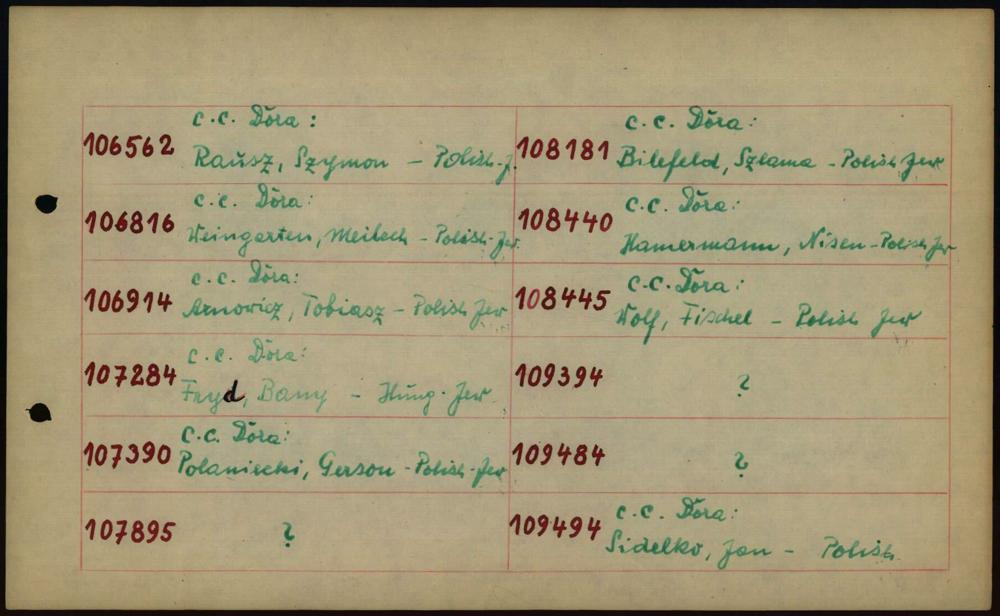 106562 c.c. Dora:
Rausz, Szymon - Polish-J.
106816 c.c. Dora:
Weingarten, Meilech - Polish-Jew
106914 c.c. Dora:
Arnowicz, Tobiasz - Polish Jew
107284 c.c. Dora:
Fryd, Bany - Hung. Jew
107390 c.c. Dora:
Polaniecki, Gerson - Polish-Jew
107895 ?
108181 c.c. Dora:
Bilefeld, Szlama - Polish Jew
108440 c.c. Dora:
Hamermann, Nisen - Polish Jew
108445 c.c. Dora:
Wolf, Fischel - Polish Jew
109394 ?
109484 ?
109494 c.c. Dora:
Sidelko, Jan - Polish